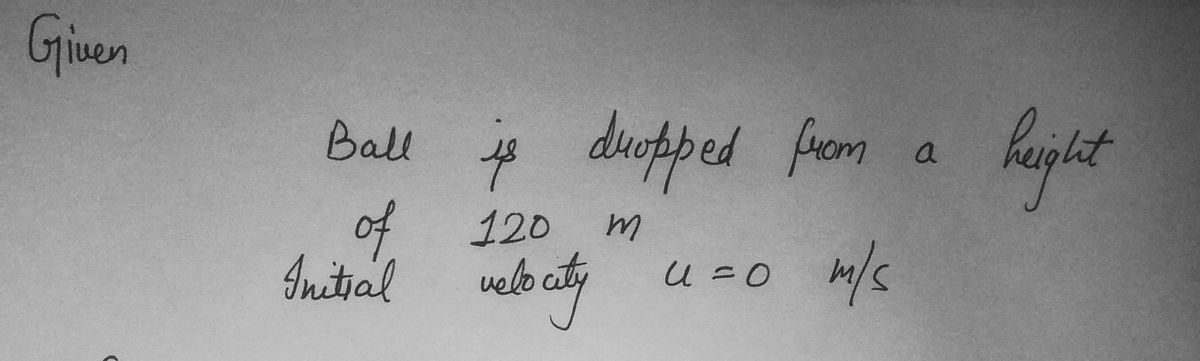 Given
Ball is dropped from a height
of 120 m
Initial velocity u = 0 m/s